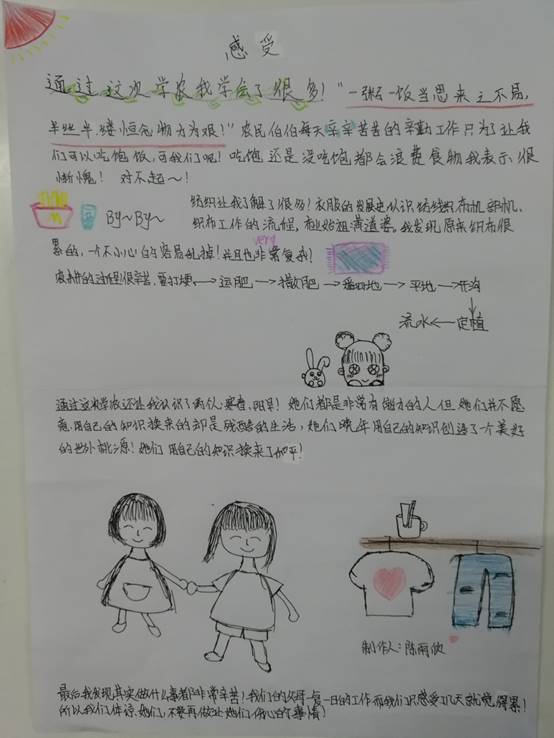 感受
通过这次学农我学会了很多！"一粥一饭当思来之不易，
半丝半缕恒念物力为艰！"农民伯伯每天辛辛苦苦的辛勤工作只为了让我
们可以吃饱饭，可我们呢！吃饱还是没吃饱都会浪费食物我表示很
惭愧！对不起～！
By～By～
纺织让我了解了很多！衣服的发展史认识纺线织布机
织布工作的流程，黄道婆。我发现原来织布很
累的，一个不小心的容易乱掉！并且也非常复杂！
very
的过程很辛苦，要打埂→运肥→撒肥→翻地→平地→开沟
流水←定植
通过这次学农还让我认识了！她们都是非常有能力的人但她们并不愿
意用自己的知识换来的却是残酷的生活，她们晚年用自己的知识创造了一个美好
的世外桃源！她们用自己的知识换来了和平！
制作人：陈雨欣
最后我发现其实做什么事都非常辛苦！我们的父母一复一日的工作而我们只感受几天就觉得累！
所以我们体谅她们，不要再做让她们伤心的事情！